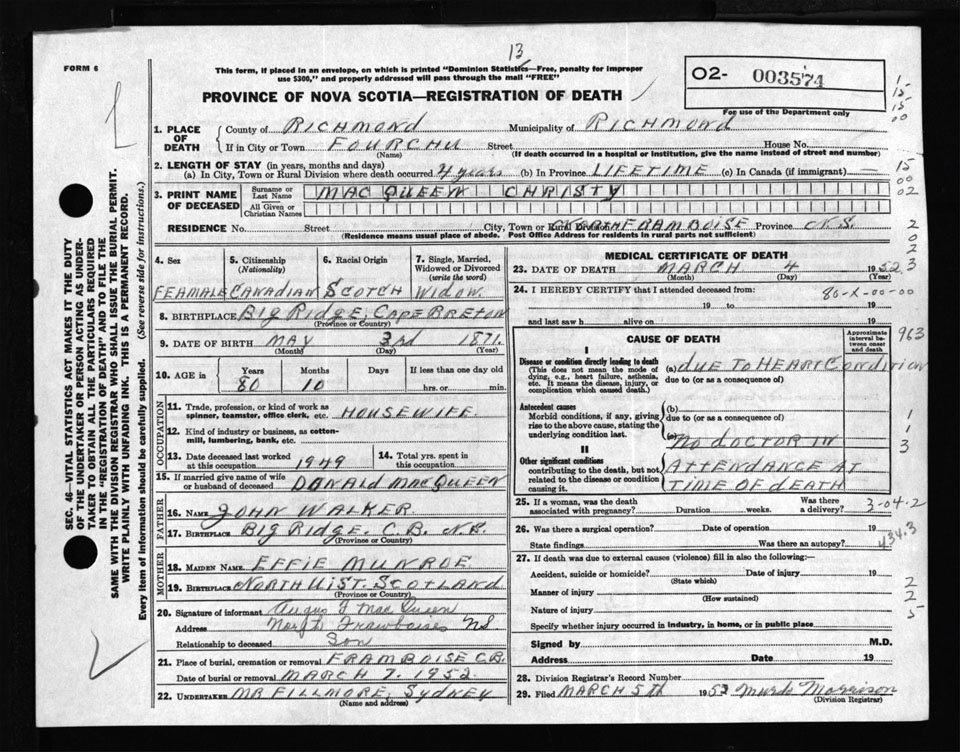 13
FORM 6
This form, if placed in an envelope, on which is printed "Dominion Statistics—Free, penalty for improper
use $300," and properly addressed will pass through the mail "FREE"
O2- 003574
For use of the Department only
PROVINCE OF NOVA SCOTIA—REGISTRATION OF DEATH
15
15
00
1. PLACE OF DEATH
County of RICHMOND Municipality of RICHMOND
If in City or Town FOURCHU Street House No.
(Name) (If death occurred in a hospital or institution, give the name instead of street and number)
2. LENGTH OF STAY (in years, months and days)
(a) In City, Town or Rural Division where death occurred 4 years (b) In Province LIFETIME (c) In Canada (if immigrant) —
15
00
02
3. PRINT NAME OF DECEASED
Surname or Last Name MACQUEEN CHRISTY
All Given or Christian Names
RESIDENCE No. Street City, Town or Rural Division NORTH FRAMBOISE Province N.S.
(Residence means usual place of abode. Post Office Address for residents in rural parts not sufficient)
2
0
2
3
SEC. 46—VITAL STATISTICS ACT MAKES IT THE DUTY
OF THE UNDERTAKER OR PERSON ACTING AS UNDER-
TAKER TO OBTAIN ALL THE PARTICULARS REQUIRED
IN THE "REGISTRATION OF DEATH" AND TO FILE THE
SAME WITH THE DIVISION REGISTRAR WHO SHALL ISSUE THE BURIAL PERMIT.
WRITE PLAINLY WITH UNFADING INK. THIS IS A PERMANENT RECORD.
Every item of information should be carefully supplied. (See reverse side for instructions.)
4. Sex
FEAMALE
5. Citizenship (Nationality)
CANADIAN
6. Racial Origin
SCOTCH
7. Single, Married, Widowed or Divorced (write the word)
WIDOW.
8. BIRTHPLACE BIG RIDGE, CAPE BRETON
(Province or Country)
9. DATE OF BIRTH MAY 3rd 1871.
(Month) (Day) (Year)
10. AGE in Years Months Days If less than one day old
80 10 hrs. or min.
OCCUPATION
11. Trade, profession, or kind of work as
spinner, teamster, office clerk, etc. HOUSEWIFE
12. Kind of industry or business, as cotton-
mill, lumbering, bank, etc.
13. Date deceased last worked
at this occupation 1949
14. Total yrs. spent in
this occupation
15. If married give name of wife
or husband of deceased DANALD MACQUEEN
FATHER
16. NAME JOHN WALKER
17. BIRTHPLACE BIG RIDGE. C.B. N.S.
(Province or Country)
MOTHER
18. MAIDEN NAME EFFIE MUNROE
19. BIRTHPLACE NORTH UIST. SCOTLAND
(Province or Country)
20. Signature of informant Angus F MacQueen
Address North Framboise NS
Relationship to deceased Son
21. Place of burial, cremation or removal FRAMBOISE C.B.
Date of burial or removal MARCH 7. 1952
22. UNDERTAKER MR FILLMORE, SYDNEY
(Name and address)
MEDICAL CERTIFICATE OF DEATH
23. DATE OF DEATH MARCH 4 1952
(Month) (Day) (Year)
24. I HEREBY CERTIFY that I attended deceased from: 80-X-00-00
19 to 19
and last saw h alive on 19
CAUSE OF DEATH
Approximate interval between onset and death
963
I
Disease or condition directly leading to death
(This does not mean the mode of
dying, e.g., heart failure, asthenia,
etc. It means the disease, injury, or
complication which caused death.)
(a) DUE TO HEART CONDITION
due to (or as a consequence of)
Antecedent causes
Morbid conditions, if any, giving
rise to the above cause, stating the
underlying condition last.
(b)
due to (or as a consequence of)
(c) NO DOCTOR IN
1
3
II
Other significant conditions
contributing to the death, but not
related to the disease or condition
causing it.
ATTENDANCE AT
TIME OF DEATH
25. If a woman, was the death
associated with pregnancy? Duration weeks. Was there a delivery? 3-04-2
26. Was there a surgical operation? Date of operation 19
State findings Was there an autopsy? 434.3
27. If death was due to external causes (violence) fill in also the following:—
Accident, suicide or homicide? Date of injury 19
(State which)
Manner of injury
(How sustained)
Nature of injury
2
2
5
Specify whether injury occurred in industry, in home, or in public place
Signed by M.D.
Address Date 19
28. Division Registrar's Record Number
29. Filed MARCH 5TH 1952 Murdo Morrison
(Division Registrar)